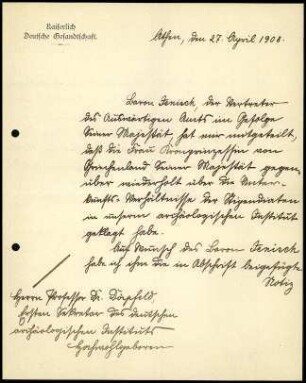 Kaiserlich
Deutsche Gesandtschaft.
Athen, den 27. April 1908.
Baron Jenisch, der Vertreter
des Auswärtigen Amts im Gefolge
Seiner Majestät, hat mir mitgeteilt,
daß die Frau Kronprinzessin von
Griechenland Seiner Majestät gegen-
über wiederholt über die Unter-
kunfts-Verhältnisse der Stipendiaten
in unserm archäologischen Institut
geklagt habe.
Auf Wunsch des Baron Jenisch
habe ich ihm die in Abschrift beigefügte
Notiz
Herrn Professor Dr. Dörpfeld,
Ersten Sekretar des deutschen
archäologischen Instituts
Hochwohlgeboren